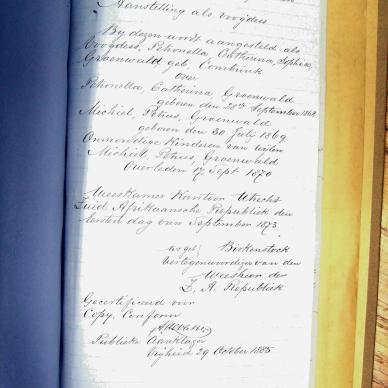 Aanstelling als voogdes
By dezen wordt aangesteld als
Voogdess, Petronella Catherina, Sophia,
Groenwald geb. Combrink
over
Petronella, Catherina, Groenwald
geboren den 28ste September 1868
Michiel, Petrus, Groenwald
geboren den 30 July 1869
Onmondige Kinderen van wijlen
Michiel, Petrus, Groenwald
Overleden 17 Sept 1870
Weeskamer Kantoor Utrecht
Zuid Afrikaansche Republiek den
Eersten dag van September 1873
was get/ Birkenstock
Vertegenwoordiger van den
Weesheer der
Z. A. Republiek
Gecertificeerd voor
Copy, Conform
Publieke Aanklager
Vrijheid 29 October 1885